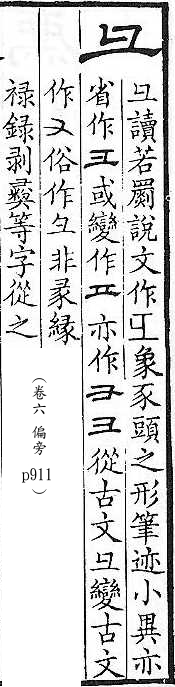 彑
彑讀若罽說文作彑象豕頭之形筆迹小異亦
省作彐或變作彐亦作ヨ彐從古文彑變古文
作又俗作彑非彖緣
祿錄剥彝等字從之
(卷六 偏旁 p911)